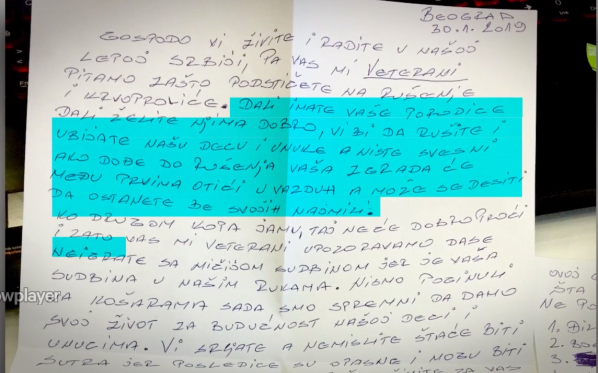 BEOGRAD
30.1.2019
GOSPODO VI ŽIVITE I RADITE U NAŠOJ
LEPOJ SRBIJI, PA VAS MI VETERANI
PITAMO ZAŠTO PODSTIČETE NA RUŠENJE
I KRVOPROLIĆE. DALI IMATE VAŠE PORODICE
DALI ŽELITE NJIMA DOBRO, VI BI DA RUŠITE I
UBIJATE NAŠU DECU I UNUKE A NISTE SVESNI
AKO DOĐE DO RUŠENJA VAŠA ZGRADA ĆE
MEĐU PRVIMA OTIĆI U VAZDUH A MOŽE SE DESITI
DA OSTANETE BE SVOJIH NAJMILI.
KO DRUGOM KOPA JAMU, TAJ NEĆE DOBRO PROĆI
I ZATO VAS MI VETERANI UPOZORAVAMO DA SE
NEIGRATE SA MIČIJOM SUDBINOM JER JE VAŠA
SUDBINA U NAŠIM RUKAMA. NISMO POGINULI
NA KOŠARAMA SADA SMO SPREMNI DA DAMO
SVOJ ŽIVOT ZA BUDUĆNOST NAŠOJ DECI I
UNUCIMA. VI SRLJATE A NEMISLITE ŠTAĆE BITI
SUTRA JER POSLEDICE SU OPASNE I MOGU BITI
ZA VAS
wplayer
OVOJ
ŠTA
NE PO
1.
2.
3.